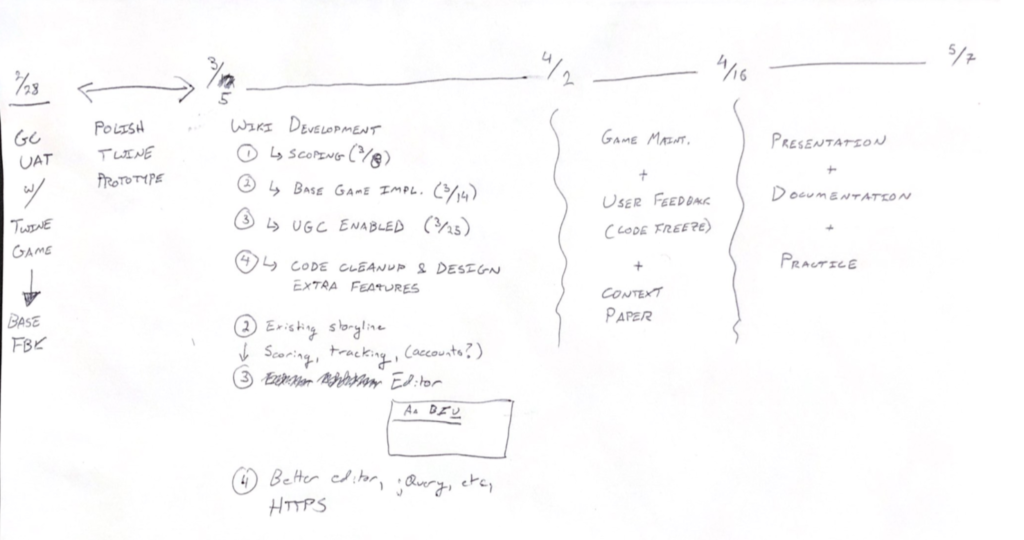 2/28
GC
UAT
w/
TWINE
GAME
BASE
FBK
POLISH
TWINE
PROTOTYPE
3/5
WIKI DEVELOPMENT
① ↳ SCOPING (3/8)
② ↳ BASE GAME IMPL. (3/14)
③ ↳ UGC ENABLED (3/25)
④ ↳ CODE CLEANUP & DESIGN
EXTRA FEATURES
② Existing storyline
↓ Scoring, tracking, (accounts?)
③ Editor
Aa B I U
④ Better editor, jQuery, etc,
HTTPS
4/2
GAME MAINT.
+
USER FEEDBACK
(CODE FREEZE)
+
CONTEXT
PAPER
4/16
PRESENTATION
+
DOCUMENTATION
+
PRACTICE
5/7